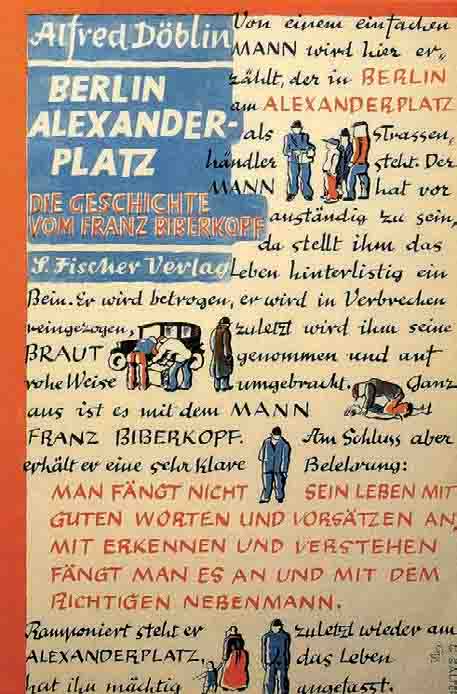 Alfred Döblin
BERLIN
ALEXANDER-
PLATZ
DIE GESCHICHTE
VOM FRANZ BIBERKOPF
S. Fischer Verlag
Von einem einfachen
MANN wird hier er-
zählt, der in BERLIN
am ALEXANDERPLATZ
als Strassen,
händler steht. Der
MANN hat vor
anständig zu sein,
da stellt ihm das
Leben hinterlistig ein
Bein. Er wird betrogen, er wird in Verbrechen
reingezogen, zuletzt wird ihm seine
BRAUT genommen und auf
rohe Weise umgebracht. Ganz
aus ist es mit dem MANN
FRANZ BIBERKOPF. Am Schluss aber
erhält er eine sehr klare Belehrung:
MAN FÄNGT NICHT SEIN LEBEN MIT
GUTEN WORTEN UND VORSÄTZEN AN,
MIT ERKENNEN UND VERSTEHEN
FÄNGT MAN ES AN UND MIT DEM
RICHTIGEN NEBENMANN.
Ramponiert steht er zuletzt wieder am
ALEXANDERPLATZ, das Leben
hat ihn mächtig angefasst.